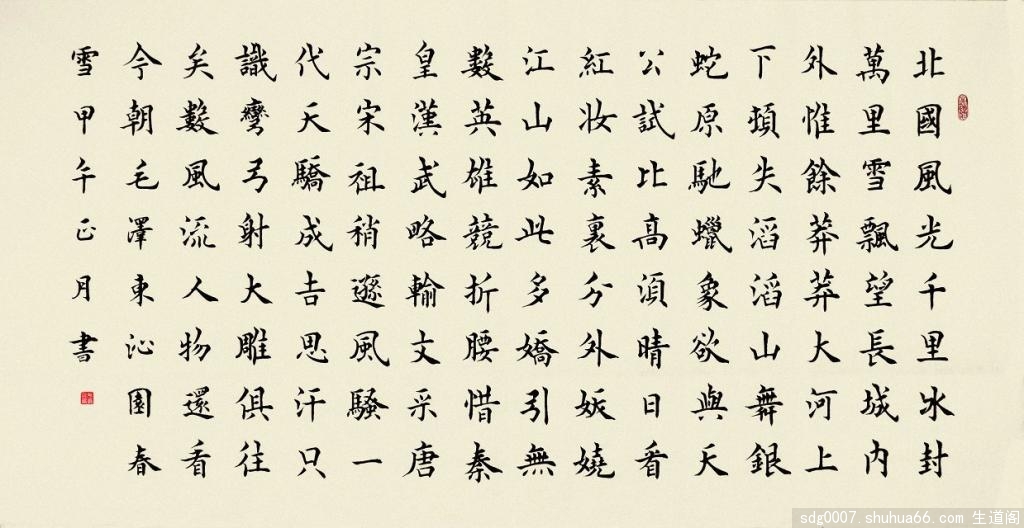 北國風光千里冰封
萬里雪飄望長城內
外惟餘莽莽大河上
下頓失滔滔山舞銀
蛇原馳蠟象欲與天
公試比高須晴日看
紅妝素裹分外妖嬈
江山如此多嬌引無
數英雄競折腰惜秦
皇漢武略輸文采唐
宗宋祖稍遜風騷一
代天驕成吉思汗只
識彎弓射大雕俱往
矣數風流人物還看
今朝毛澤東沁園春
雪甲午正月書
sdg0007.shuhua66.com 生道阁